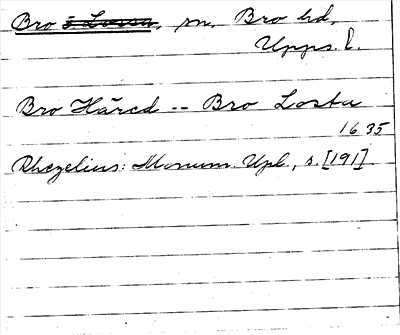 Bro s. Lossa, sn, Bro hd,
Upps. l.
Bro Häred -- Bro Losta
1635
Rhezelius: Monum. Upl., s. [191].